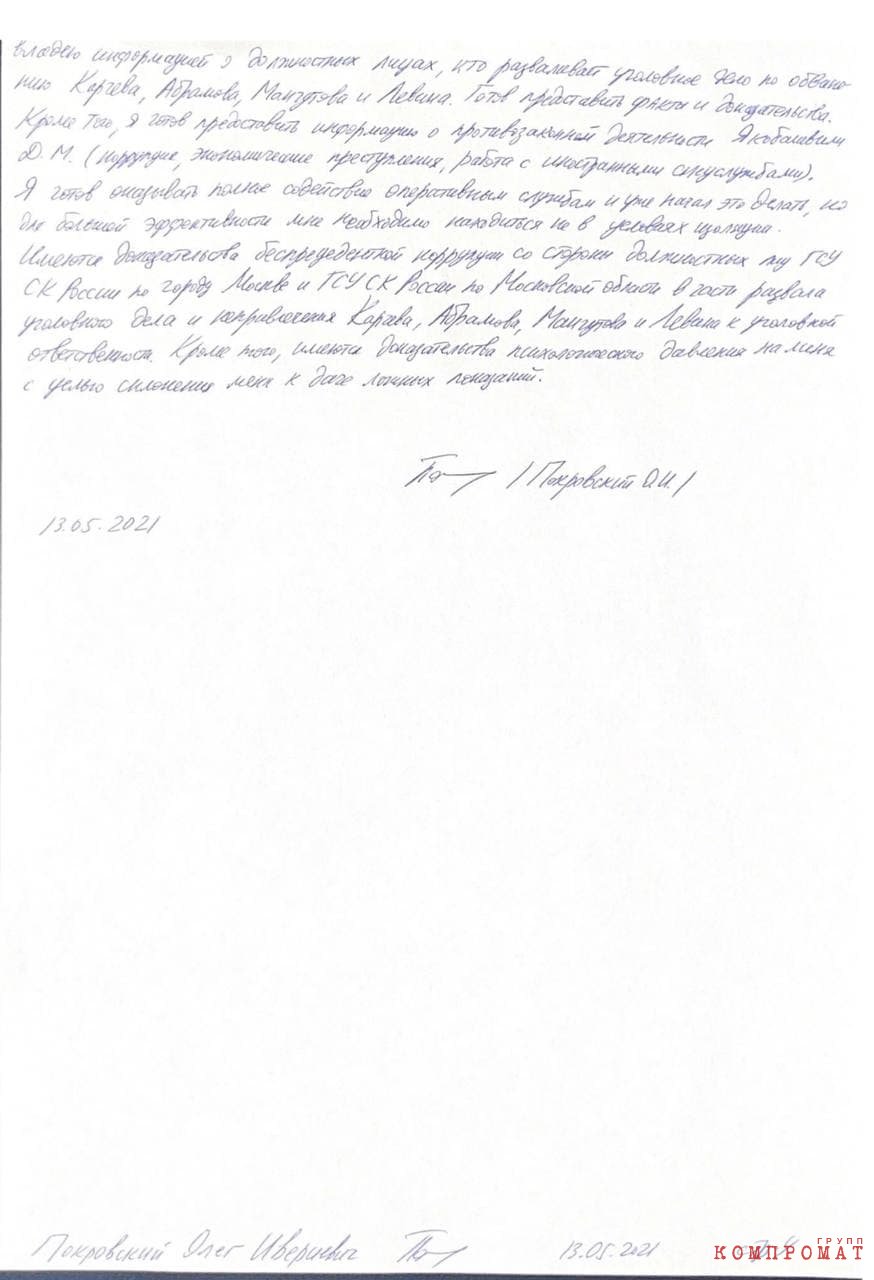 владею информацией о должностных лицах, кто разваливает уголовное дело по обвине-
нию Карчева, Абрамова, Мангутова и Левина. Готов представить факты и доказательства.
Кроме того, я готов предоставить информацию о противозаконной деятельности Якобашвили
Д. М. (коррупция, экономические преступления, работа с иностранными спецслужбами).
Я готов оказывать полное содействие оперативным службам и уже начал это делать, но
для большей эффективности мне необходимо находиться не в условиях изоляции.
Имеются доказательства беспрецедентной коррупции со стороны должностных лиц ГСУ
СК России по городу Москве и ГСУ СК России по Московской области в части развала
уголовного дела и непривлечения Карчева, Абрамова, Мангутова и Левина к уголовной
ответственности. Кроме того, имеются доказательства психологического давления на меня
с целью склонения меня к даче ложных показаний.
/ Покровский О.И. /
13.05.2021
Покровский Олег Ивериевич
13.05.2021
ГРУПП
КОМПРОМАТ